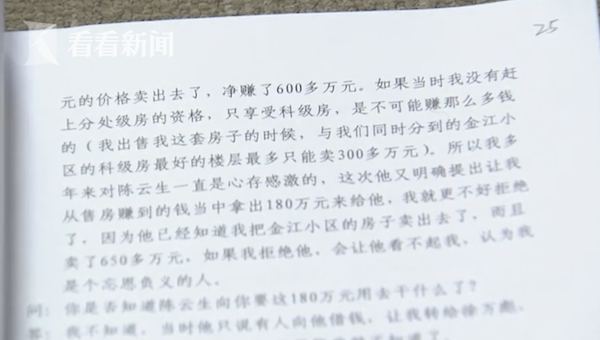 看看新闻
25
元的价格卖出去了，净赚了600多万元。如果当时我没有赶
上分处级房的资格，只享受科级房，是不可能赚那么多钱
的（我出售我这套房子的时候，与我们同时分到的金江小
区的科级房最好的楼层最多只能卖300多万元）。所以我多
年来对陈云生一直是心存感激的，这次他又明确提出让我
从售房赚到的钱当中拿出180万元来给他，我就更不好拒绝
了，因为他已经知道我把金江小区的房子卖出去了，而且
卖了650多万元，如果我拒绝他，会让他看不起我，认为我
是个忘恩负义的人。
问：你是否知道陈云生向你要这180万元用去干什么了？
答：我不知道，当时他只说有人向他借钱，让我转给徐万彪，